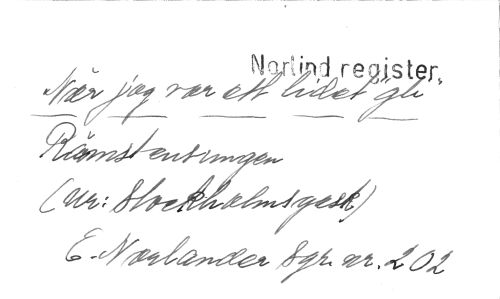 Norlind register.
När jag var ett litet "gli"
Rännstensungen
(ur: Stockholmsgask)
E. Norlander Sgr. nr. 202